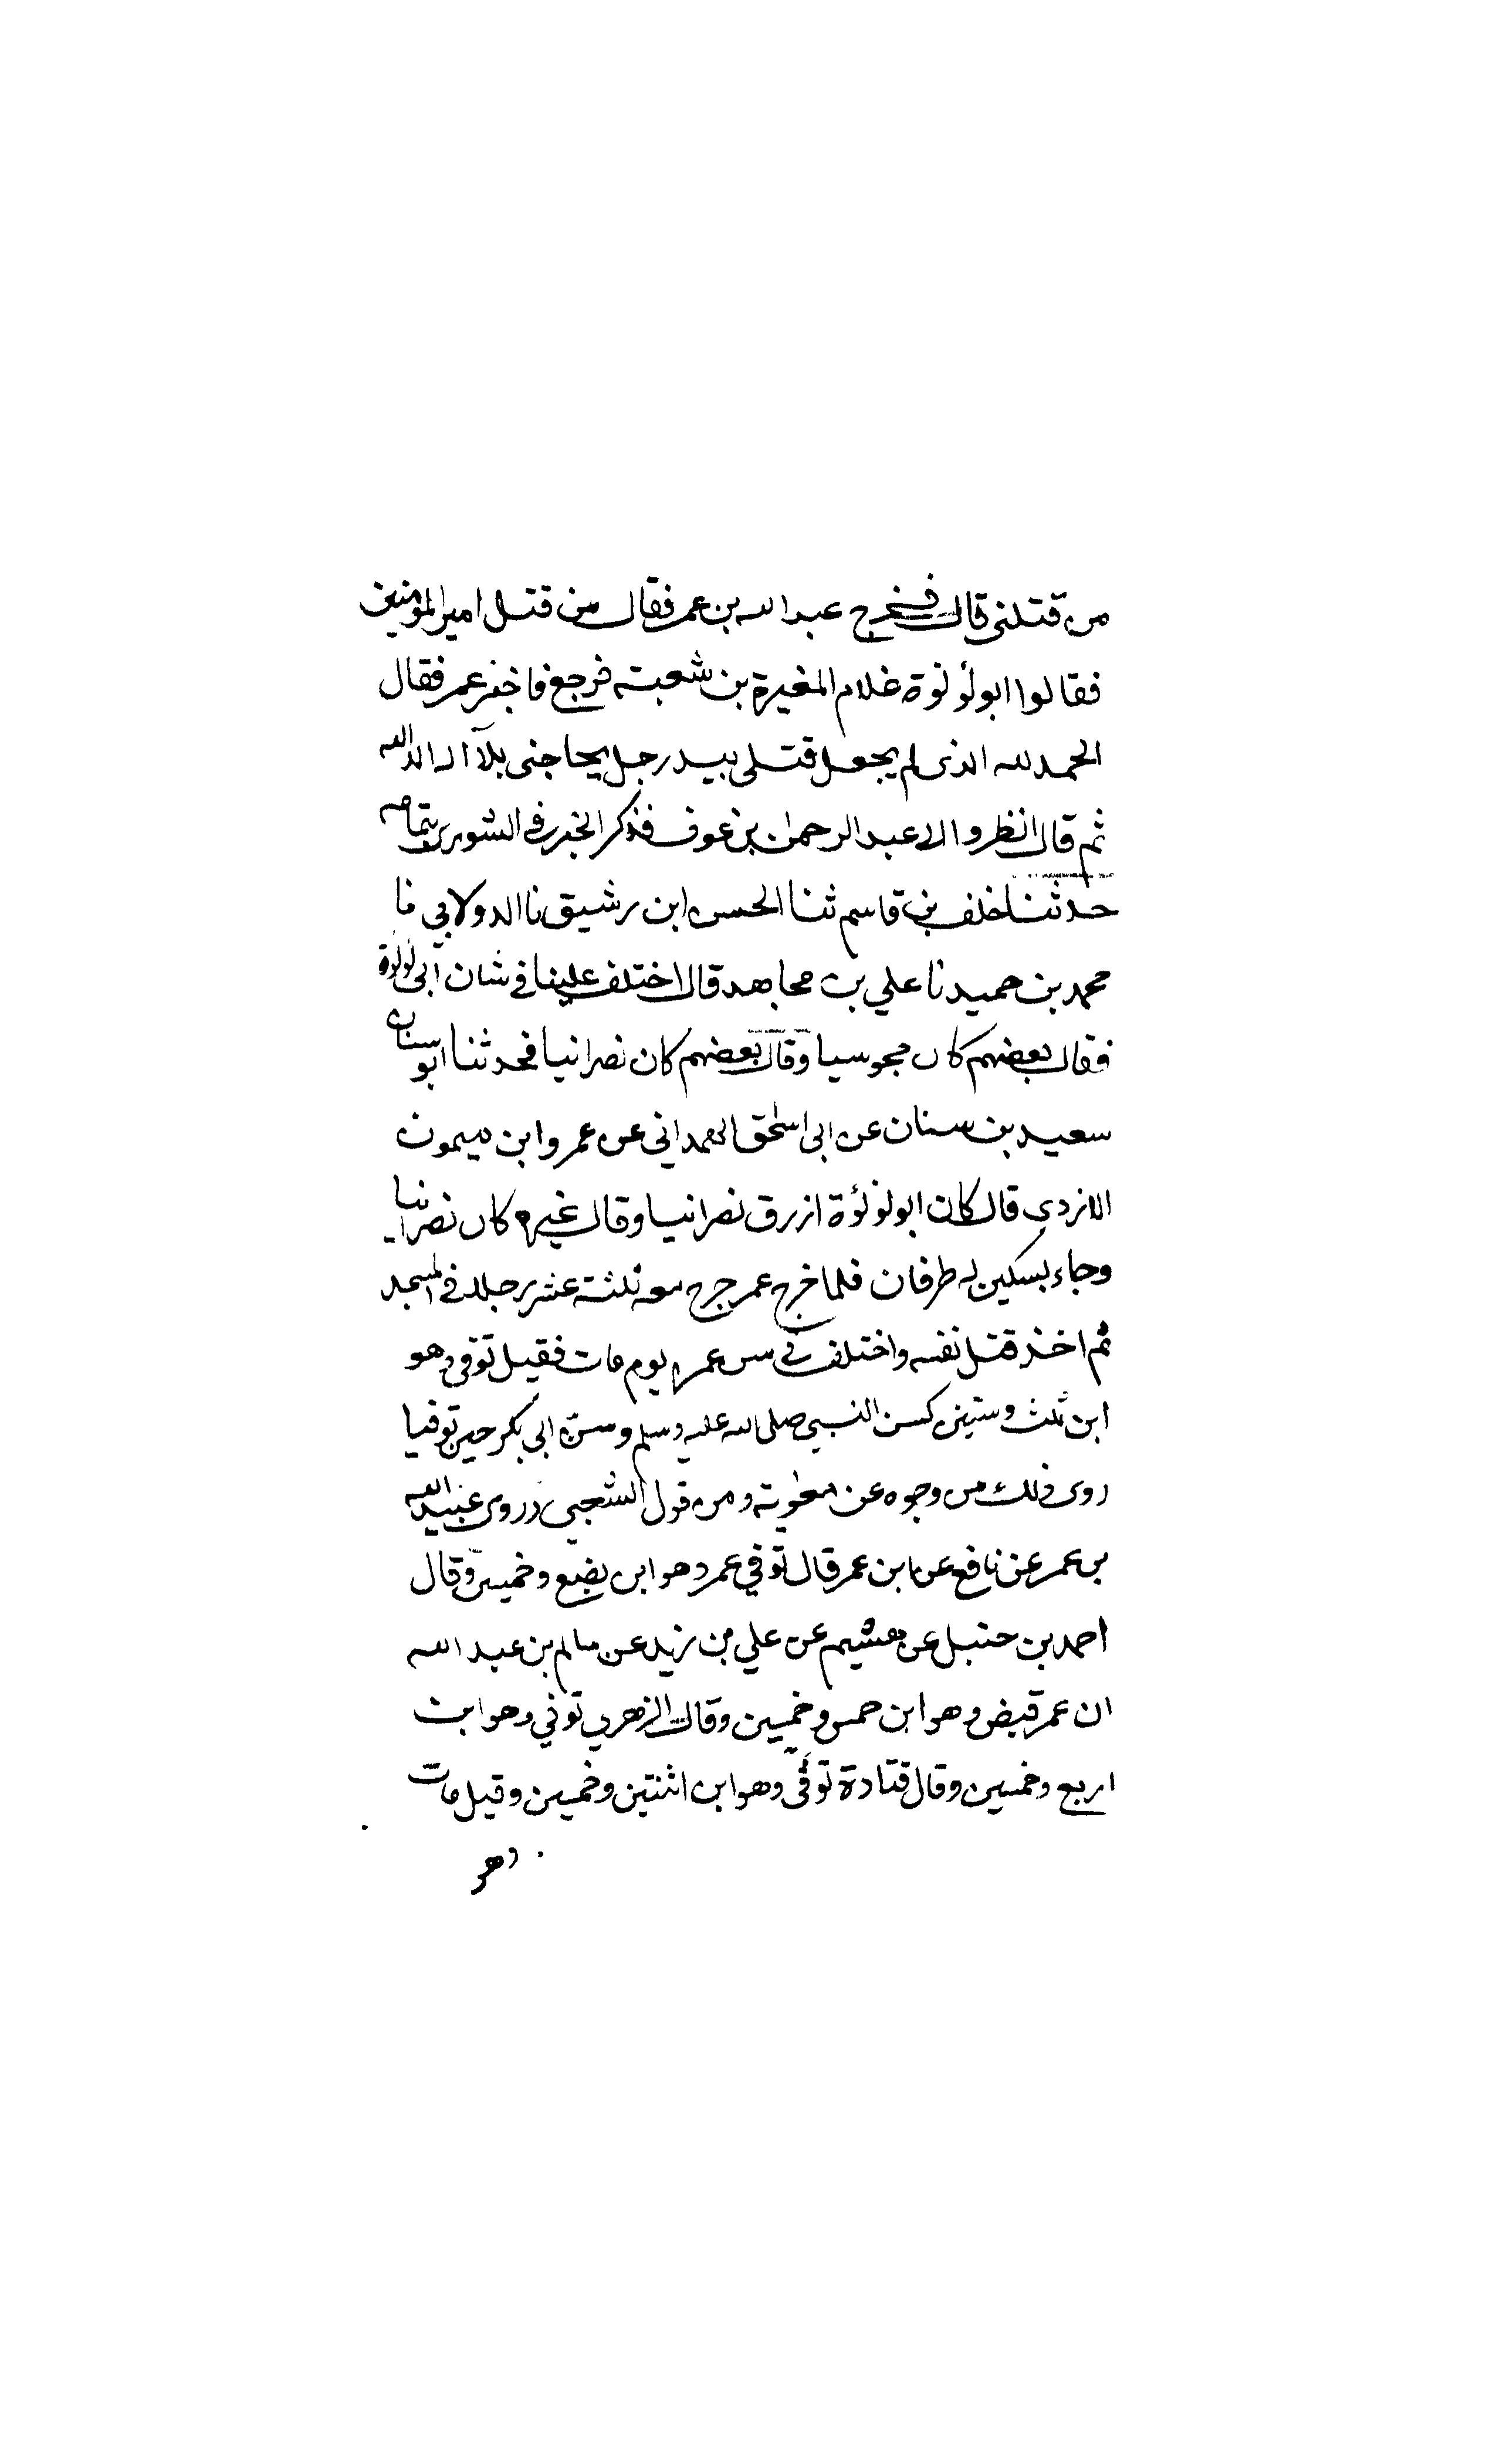 من قتلني قال فخرج عبد الله بن عمر فقال من قتل امير المومنين
فقالوا ابو لؤلوة غلام المغيرة بن شعبة فرجع فاخبر عمر فقال
الحمد لله الذى لم يجعل قتلى بيد رجل يحاجنى بلا اله الا الله
ثم قال انظروا الى عبد الرحمان بن عوف فذكر الخبر في الشورى بتمامه
حدثنا خلف بن قاسم ثنا الحسن ابن رشيق نا الدولابي نا
محمد بن حميد نا علي بن مجاهد قال اختلف علينا في شان ابى لولوة
فقال بعضهم كان مجوسيا وقال بعضهم كان نصرانيا فحدثنا ابو سنان
سعيد بن سنان عن ابى اسحق الهمداني عن عمرو ابن ميمون
الازدي قال كان ابو لؤلؤة ازرق نصرانيا وقال غيره كان نصرانيا
وجاء بسكين له طرفان فلما خرج عمر جرح معه ثلثة عشر رجلا في المسجد
ثم اخذ قتل نفسه واختلف في سن عمر يوم مات فقيل توفي وهو
ابن ثلث وستين كسن النبي صلى الله عليه وسلم وسن ابى بكر حين توفيا
روى ذلك من وجوه عن معوية ومن قول الشعبي وروى عبيد الله
بن عمر عن نافع عن ابن عمر قال توفي عمر وهو ابن بضع وخمسين وقال
احمد بن حنبل عن هشيم عن علي بن زيد عن سالم بن عبد الله
ان عمر قبض وهو ابن خمس وخمسين وقال الزهري توفي وهو ابن
اربع وخمسين وقال قتادة توفي وهو ابن اثنتين وخمسين وقيل مات
وهو